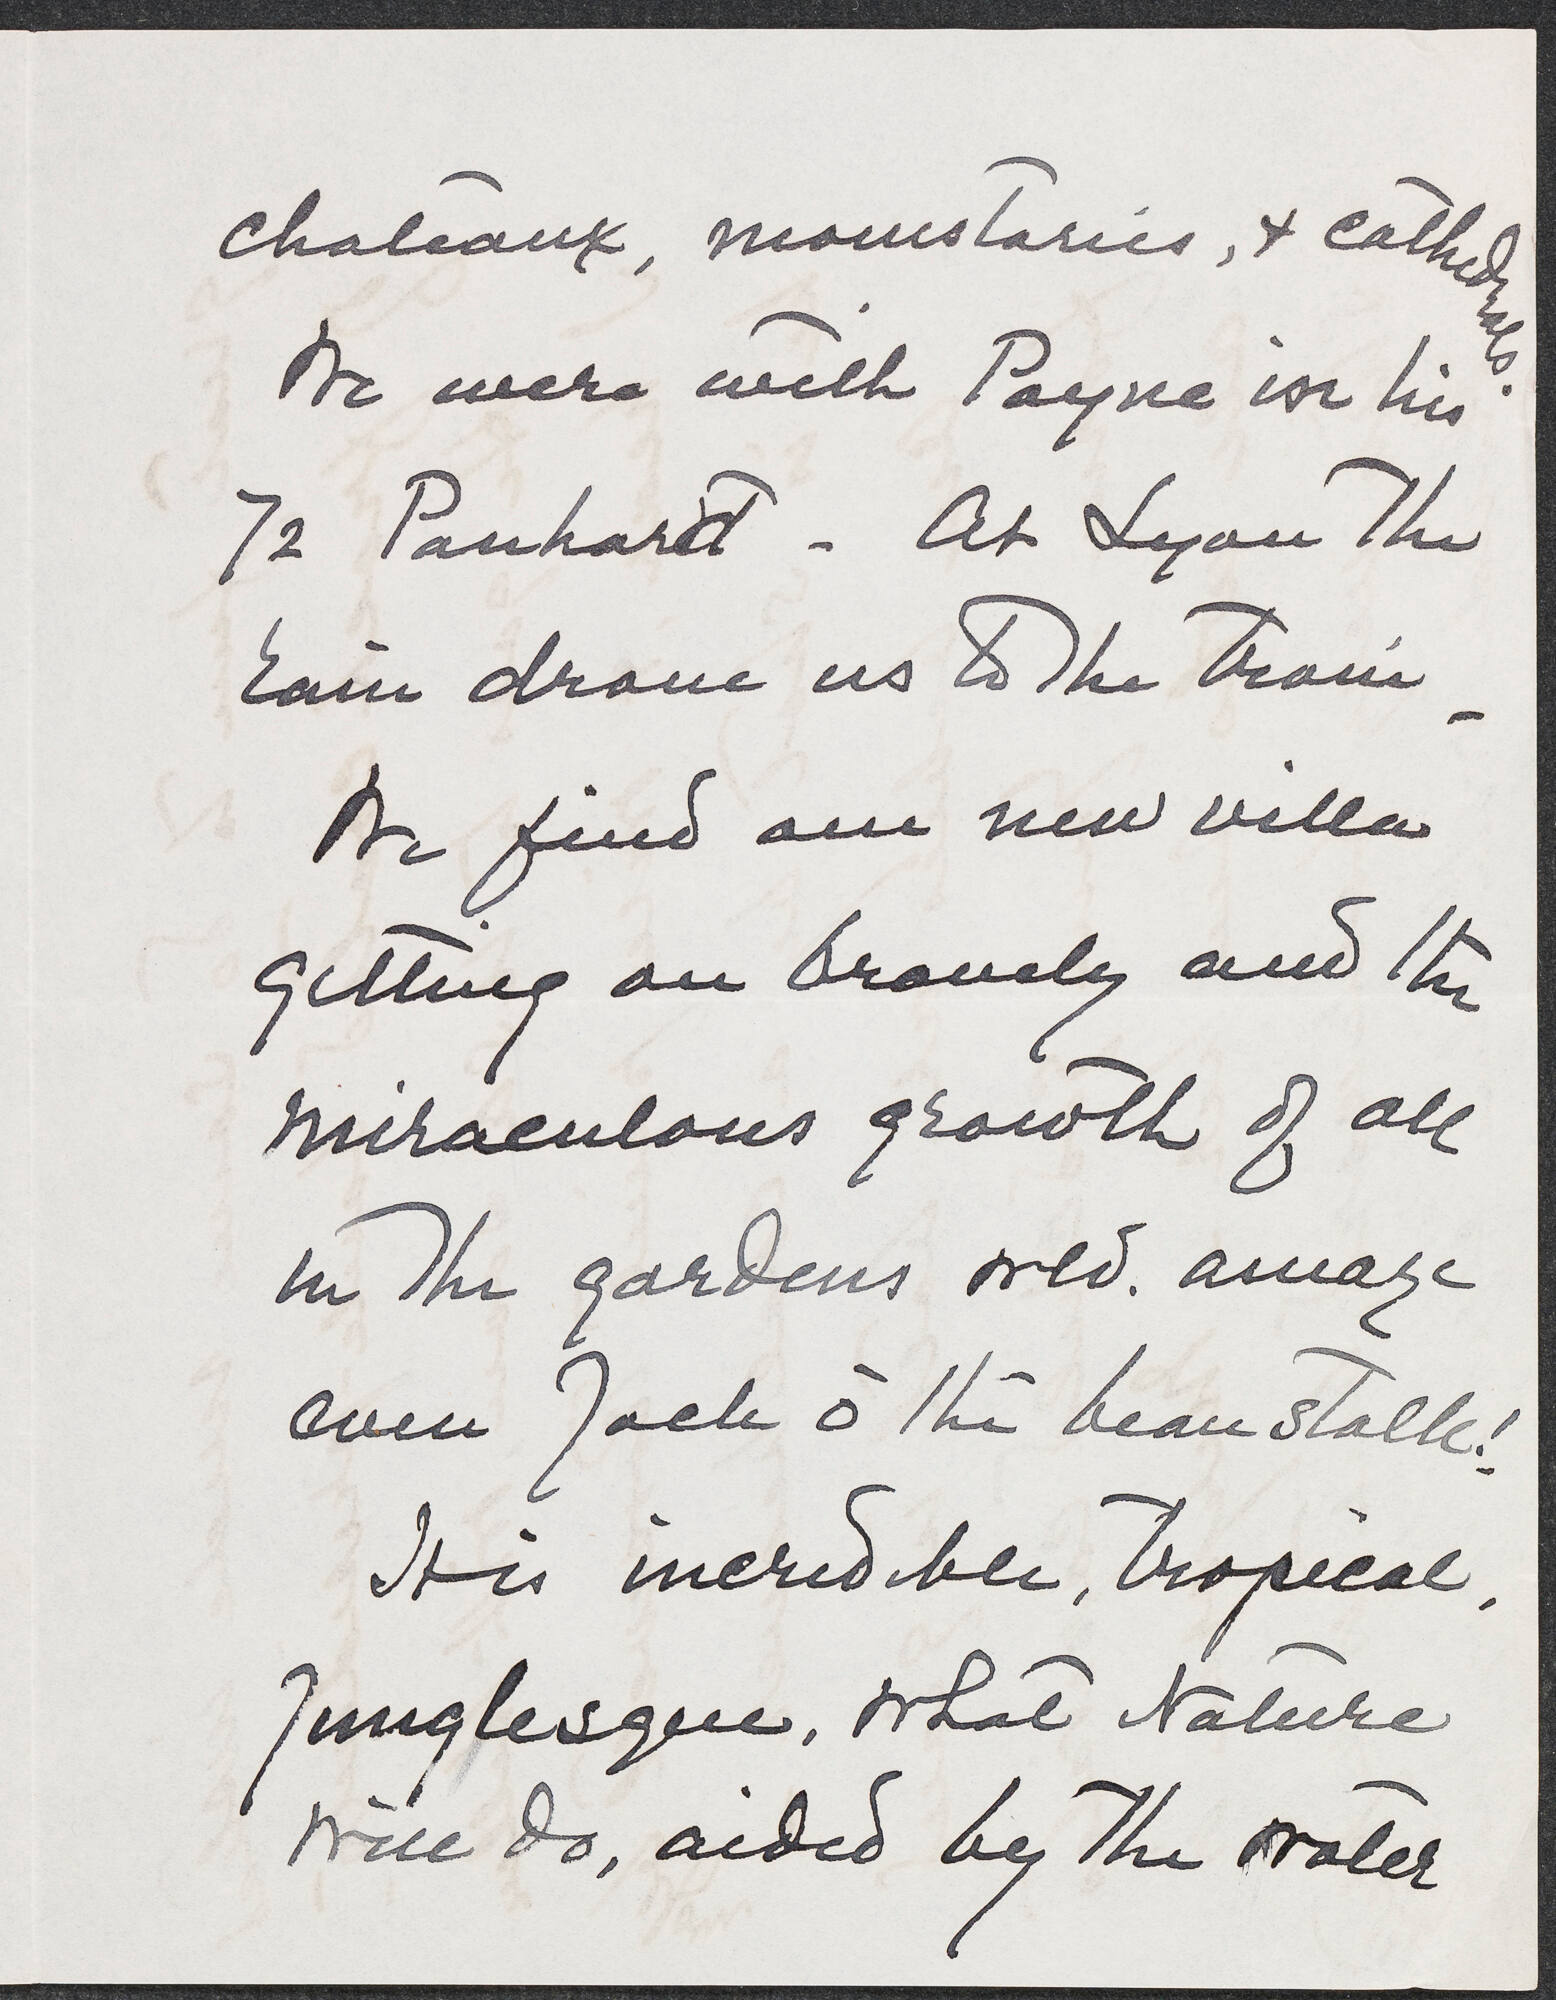 chateaux, monistaries, & cathedrals.
We were with Payne in his
72 Panhard - At Lyon the
rain drove us to the train -
We find our new villa
getting on bravely and the
miraculous growth of all
in the gardens wld. amaze
even Jack o' the bean stalk!
It is incredible, tropical,
junglesque, what Nature
will do, aided by the water